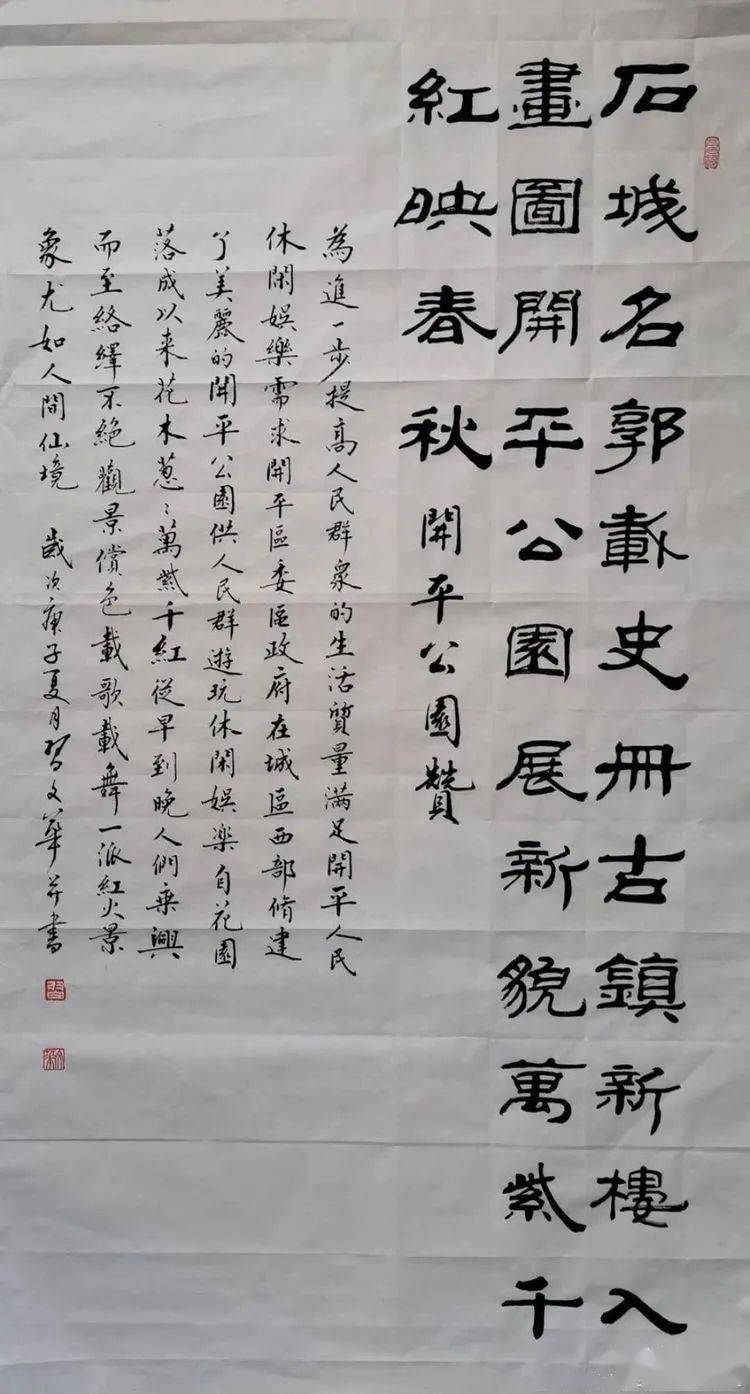 石城名郭載史冊古鎮新樓入
畫圖開平公園展新貌萬紫千
紅映春秋
開平公園贊
為進一步提高人民群眾的生活質量滿足開平人民
休閑娛樂需求開平區委區政府在城區西部脩建
了美麗的開平公園供人民群遊玩休閑娛樂自花園
落成以来花木蔥〻萬紫千紅從早到晚人們乘興
而至絡繹不絕觀景償色載歌載舞一派紅火景
象尤如人間仙境 歲次庚子夏月習文華并書